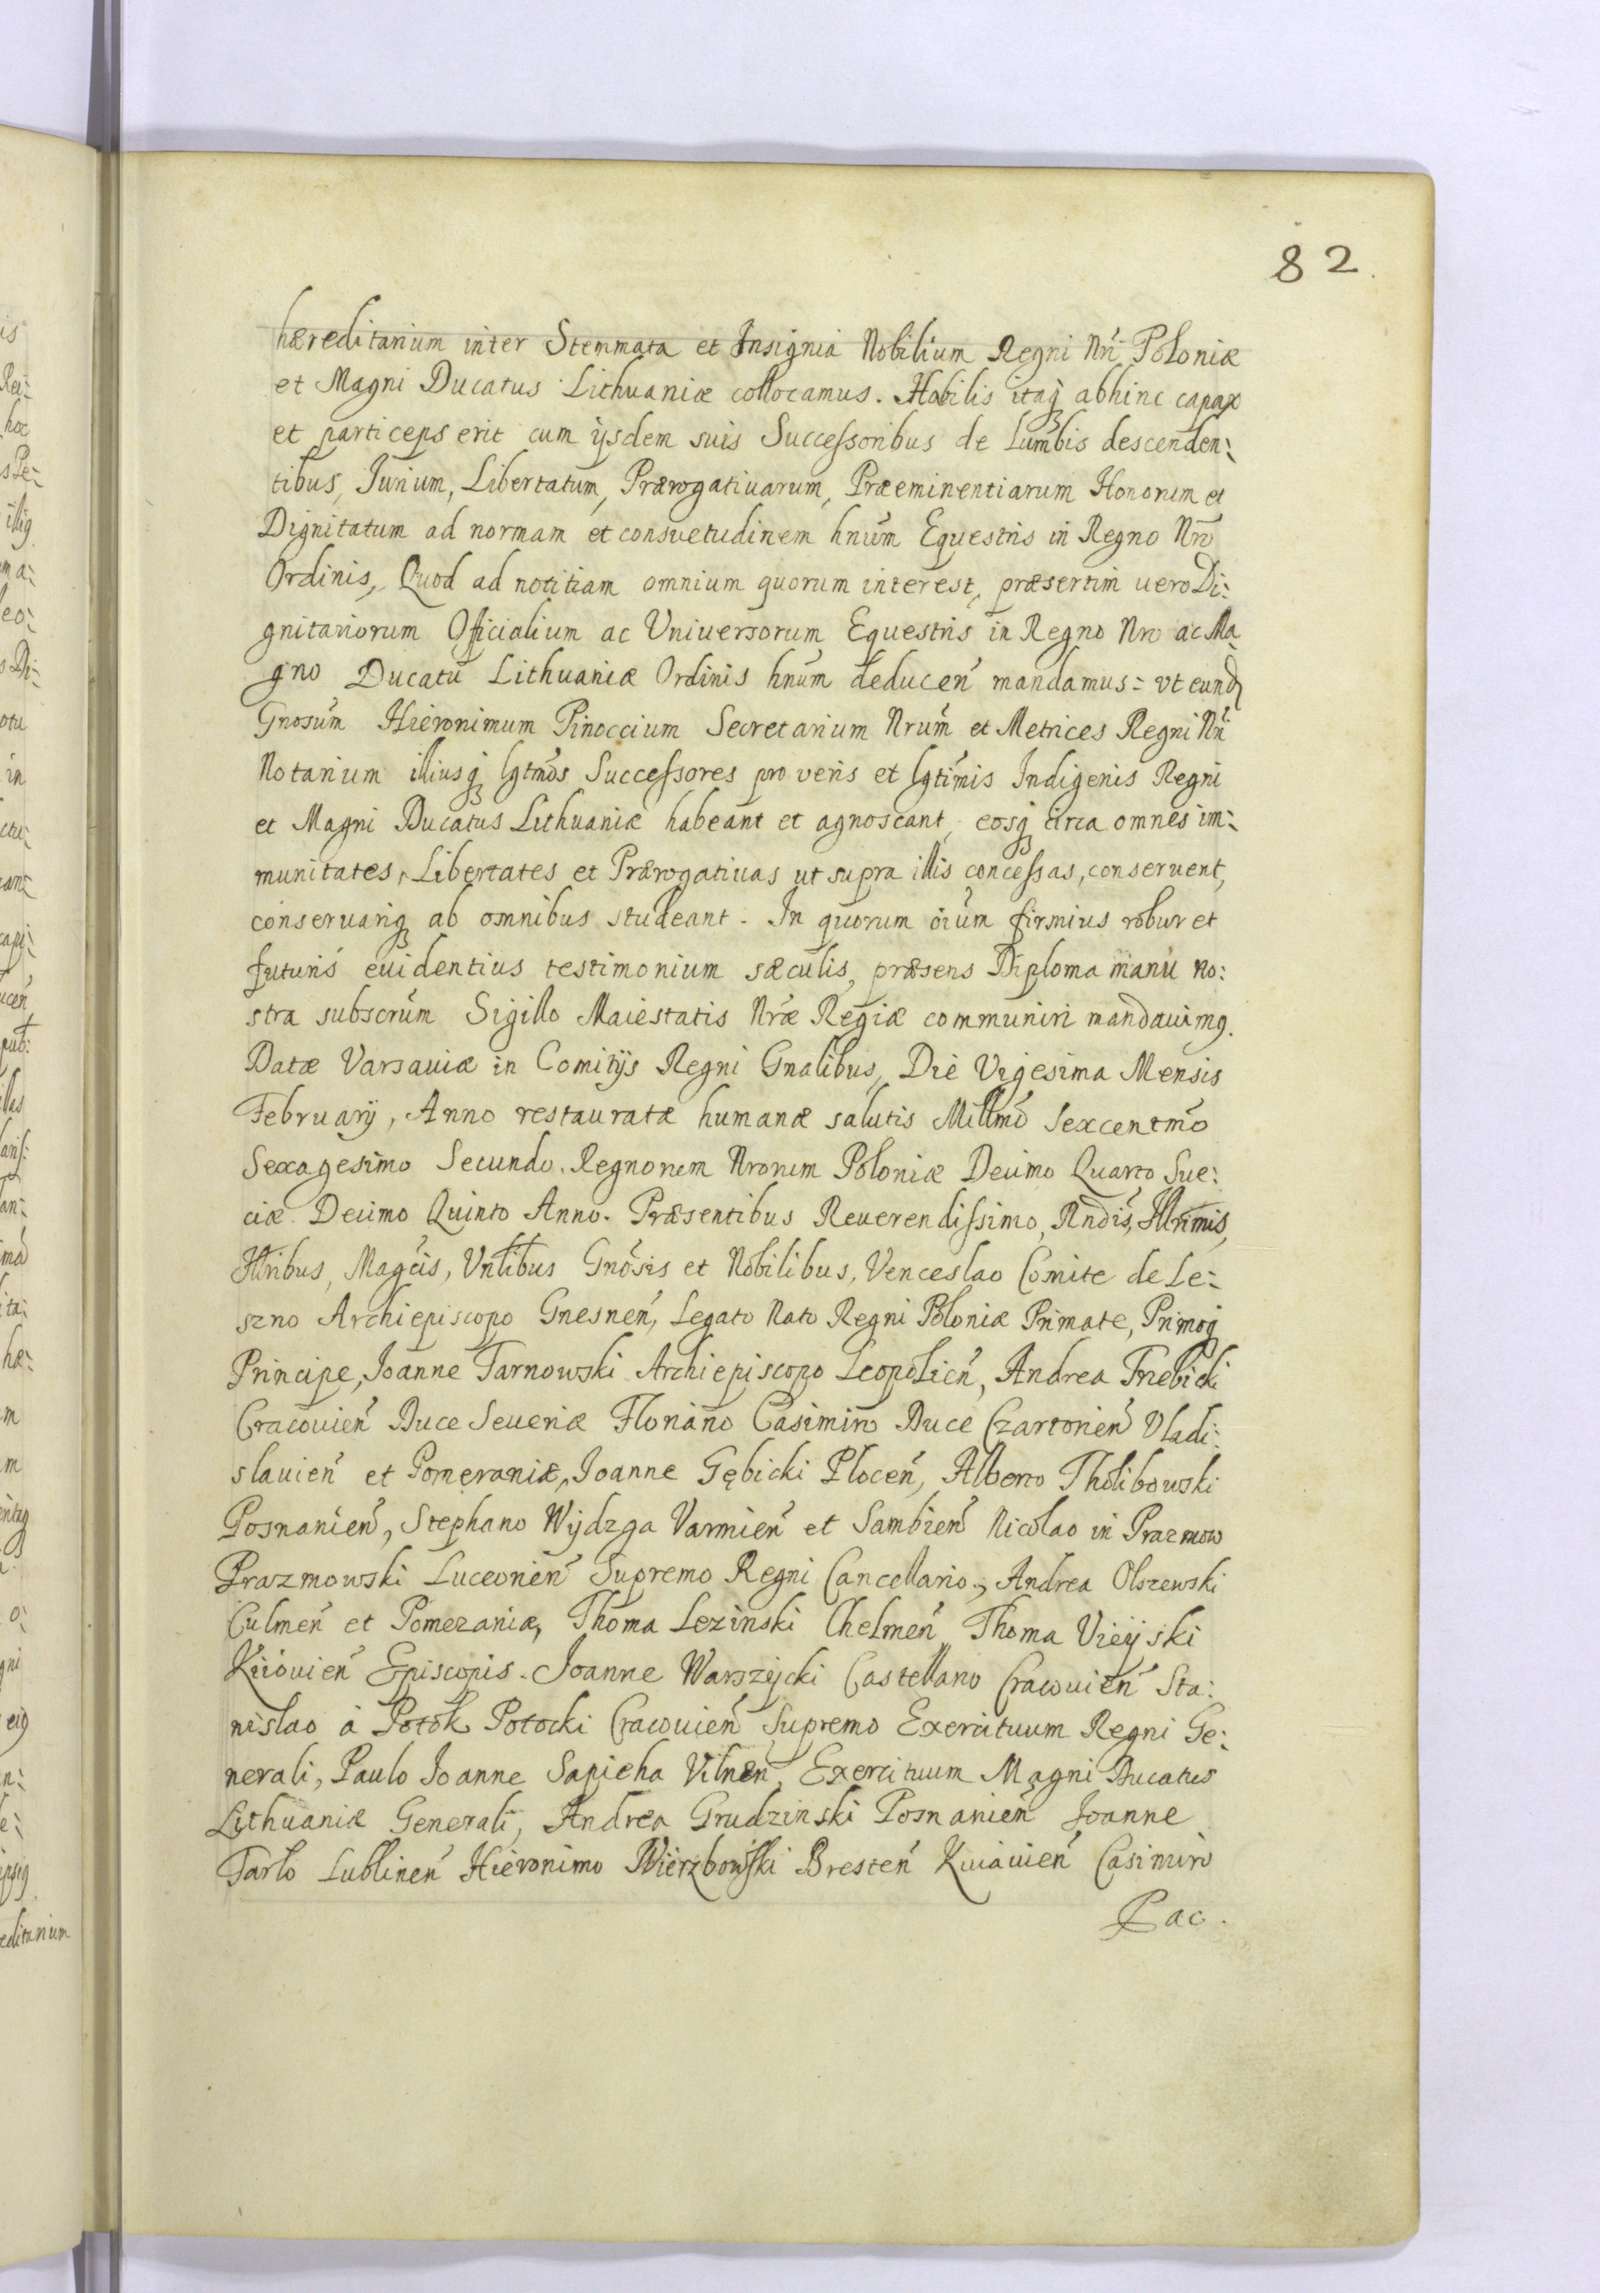 82
hæreditarium inter Stemmata et Insignia Nobilium Regni Nri Poloniæ
et Magni Ducatus Lithuaniæ collocamus. Habilis itaq abhinc capax
et particeps erit cum ijsdem suis Successoribus de Lumbis descenden:
tibus, Jurium, Libertatum, Prærogatiuarum, Præeminentiarum Honorum et
Dignitatum ad normam et consvetudinem hnūm Equestris in Regno Nrō
Ordinis, Quod ad notitiam omnium quorum interest, præsertim uero Di:
gnitariorum Officialium ac Vniuersorum Equestris in Regno Nro ac Ma
gno Ducatu Lithuaniæ Ordinis hnūm deducen̄ mandamus: vt eund
Gnosūm Hieronimum Pinoccium Secretarium Nrūm et Metrices Regni Nri
Notarium illiusq lgtmōs Successores pro veris et lgtīmis Indigenis Regni
et Magni Ducatus Lithuaniæ habeant et agnoscant, eosq circa omnes im:
munitates, Libertates et Prærogatiuas ut supra illis concessas, conseruent,
conseruariq ab omnibus studeant. In quorum oīum firmius robur et
futuris euidentius testimonium sæculis, præsens Diploma manu no:
stra subscrūm Sigillo Maiestatis Nrǣ Regiæ communiri mandauimq.
Datæ Varsauiæ in Comitijs Regni Gnalibus, Die Vigesima Mensis
February, Anno restauratæ humanæ salutis Millmō Sexcentmō
Sexagesimo Secundo. Regnorum Nrorum Poloniæ Decimo Quarto Sue:
ciæ Decimo Quinto Anno. Præsentibus Reuerendissimo, Rndīs, Illrimis,
Illribus, Magcīs, Vntibus Gnōsis et Nobilibus, Venceslao Comite de Le:
szno Archiepiscopo Gnesnen̄, Legato Nato Regni Poloniæ Primate, Primoq
Principe, Joanne Tarnowski Archiepiscopo Leopolien̄, Andrea Trzebicki
Cracouien̄ Duce Seueriæ Floriano Casimiro Duce Czartorien̄ Vladi:
slauien̄ et Pomeraniæ, Joanne Gębicki Plocen̄, Alberto Tholibowski
Posnanien̄, Stephano Wydzga Varmien̄ et Sambien̄ Nicolao in Prazmow
Prazmowski Luceorien̄ Supremo Regni Cancellario, Andrea Olszewski
Culmen̄ et Pomezaniæ, Thoma Lezinski Chelmen̄, Thoma Vieyski
Kiiouien̄ Episcopis. Joanne Warszycki Castellano Cracouien̄ Sta:
nislao á Potok Potocki Cracouien̄ Supremo Exercituum Regni Ge:
nerali, Paulo Joanne Sapieha Vilnen̄, Exercituum Magni Ducatus
Lithuaniæ Generali, Andrea Grudzinski Posnanien̄ Joanne
Tarlo Lublinen̄ Hieronimo Wierzbowski Bresten̄ Kuiauien̄ Casimiro
Pac.